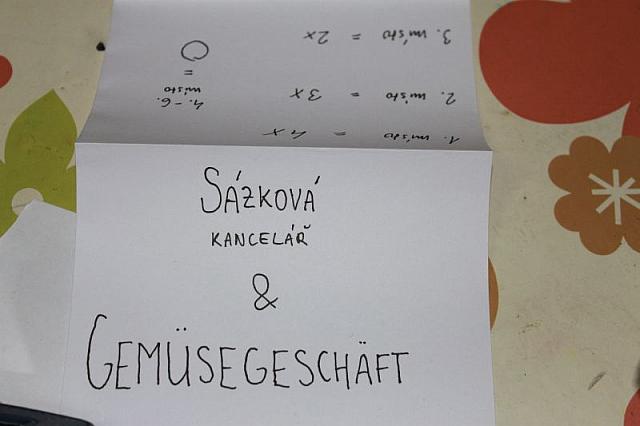 SÁZKOVÁ
KANCELÁŘ
&
GEMÜSEGESCHÄFT
1. místo = 4x
2. místo = 3x
3. místo = 2x
4.-6.
místo
=
O